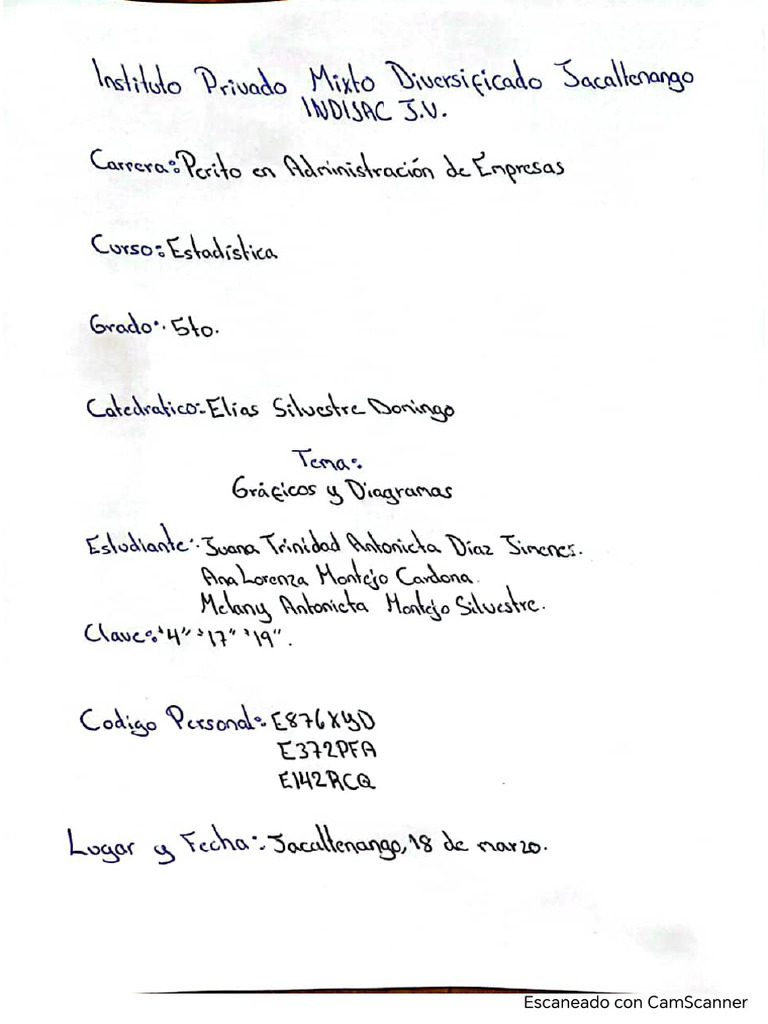 Instituto Privado Mixto Diversificado Jacaltenango
INDISAC J.V.
Carrera: Perito en Administración de Empresas
Curso: Estadística
Grado: 5to.
Catedratico: Elías Silvestre Domingo
Tema:
Gráficos y Diagramas
Estudiante: Juana Trinidad Antonieta Díaz Jimenes.
Ana Lorenza Montejo Cardona.
Melany Antonieta Montejo Silvestre.
Clave: "4" "17" "19".
Codigo Personal: E876XYD
E372PFA
E142RCQ
Lugar y Fecha: Jacaltenango, 18 de marzo.
Escaneado con CamScanner